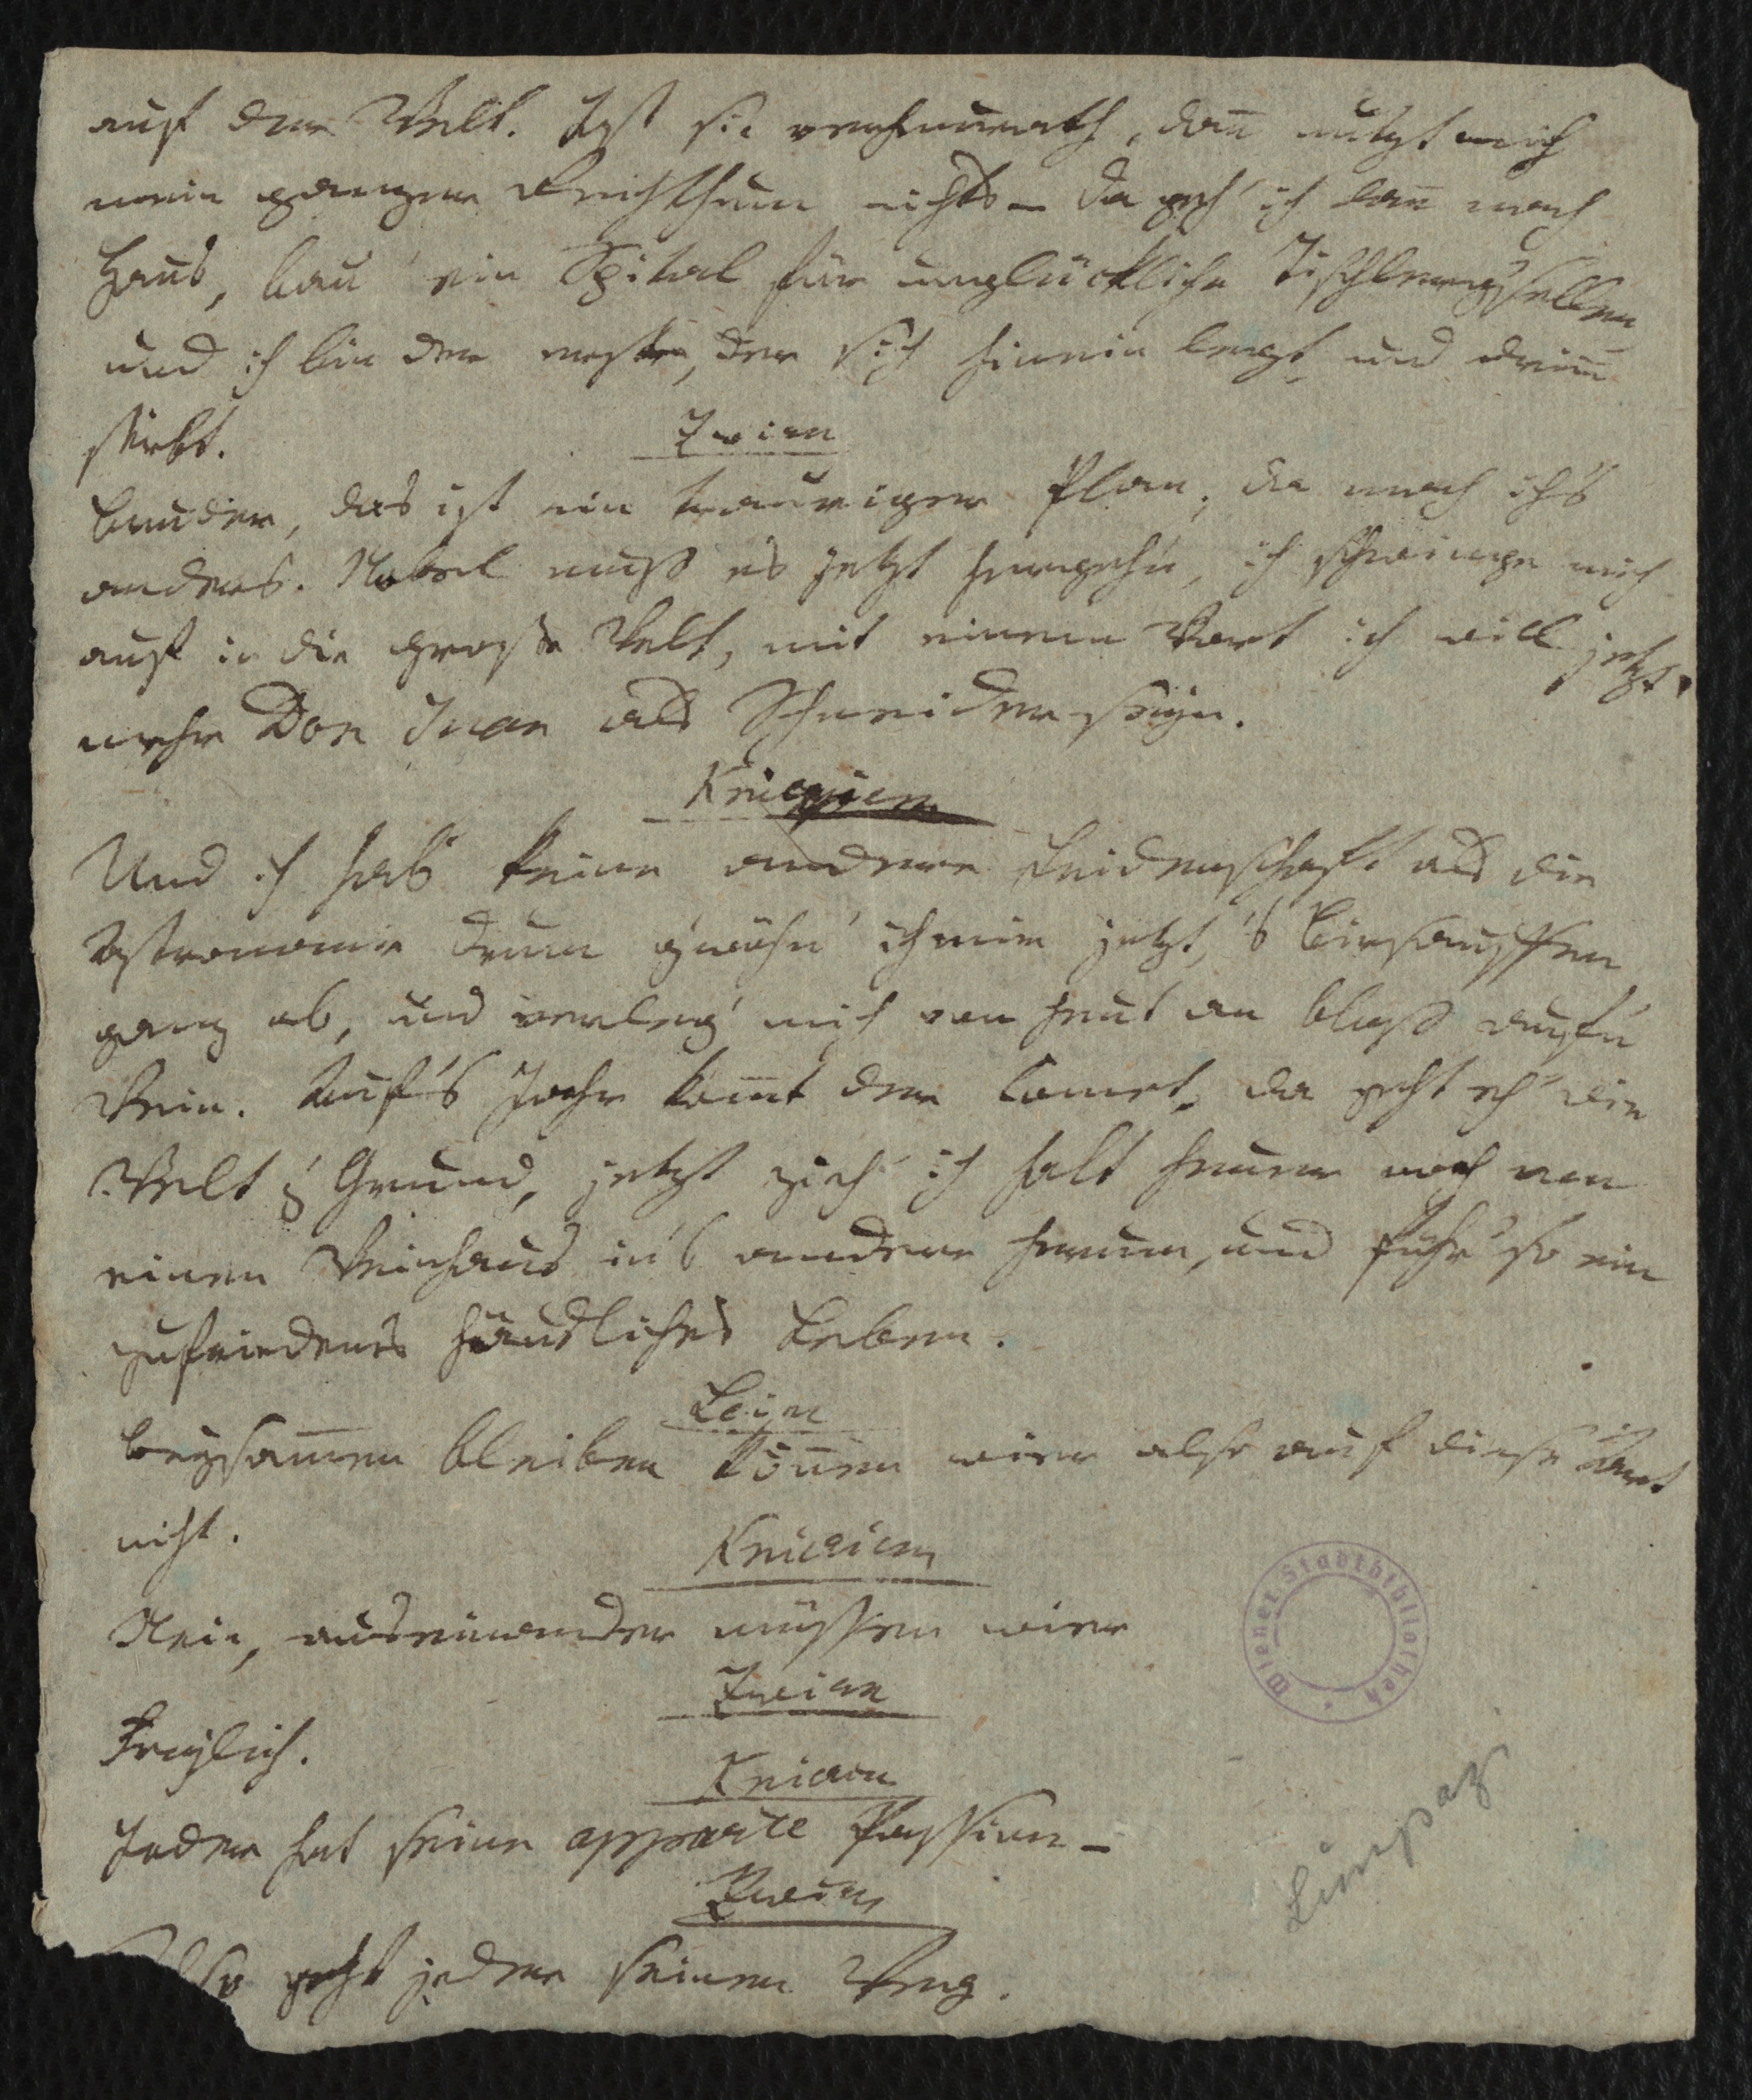 auf der Welt. Ist sie verheurath, dan̅ nutzt mich
mein ganzer Reichthum nichts – da geh' ich dan̅ nach
Haus, bau' ein Spital für unglückliche Tischlergsellen
und ich bin der erste, der sich hinein legt und drin̅
stirbt.
Zwirn
Bruder, das ist ein trauriger Plan, da mach ich's
anders. Nobel muß es jetzt hergehn, ich schwinge mich
auf in die große Welt, mit einem Wort ich will jetzt
mehr Don Juan als Schneider seyn.
Knieriem
Und ich hab' keine andere Leidenschaft als die
Astronomie drum g'wöhn' ich mir jetzt, 's Biersauffen
ganz ab, und verleg' mich von heut an bloß auf'n
Wein. Auf's Jahr kom̅t der Comet, da geht eh' die
Welt z' Grund, jetzt zieh' ich halt heuer noch von
einen Weinhaus in's andere herum, und führ' so ein
zufriedenes häusliches Leben.
Leim
Beysam̅en bleiben kön̅en wir also auf diese Art
nicht.
Knieriem
Nein, auseinander müssen wir
Zwirn
Freylich.
Knieriem
Jeder hat seine apparte Passion –
Zwirn
Also geht jeder seinen Weg.
Wiener Stadtbibliothek
Lumpaz